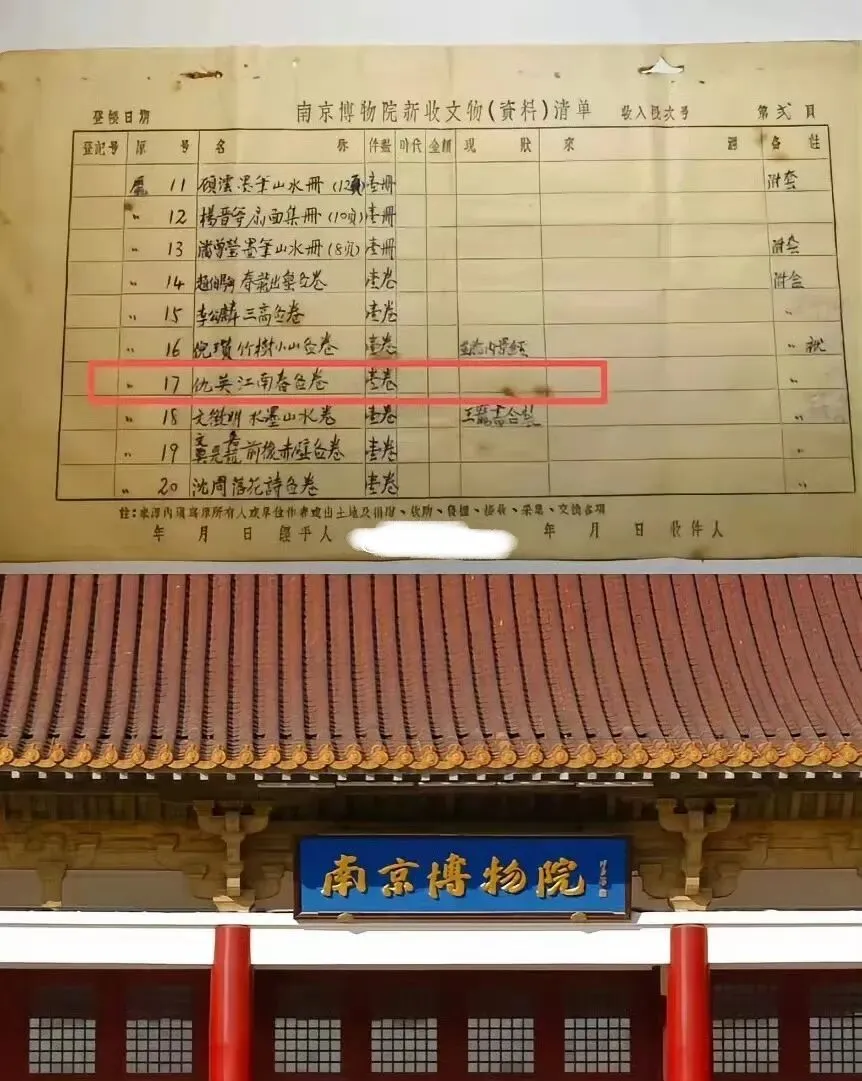 南京博物院新收文物(資料)清单
登検日期 收入梹次号 第弍頁
登記号 原号 名称 件数 时代 金額 现狀 來源 备註
龐 11 碩澐墨筆山水冊 (12頁) 壹冊 附套
〃 12 楊晋等扇面集冊 (10页) 壹冊
〃 13 潘曾瑩墨筆山水冊 (8页) 壹冊 附套
〃 14 趙伯駒春龍出蟄图卷 壹卷 附盒
〃 15 李公麟三高图卷 壹卷 〃
〃 16 倪瓚竹樹小山图卷 壹卷 〃
〃 17 仇英江南春图卷 壹卷 〃
〃 18 文徵明水墨山水卷 壹卷 〃
〃 19 前後赤壁图卷 壹卷 〃
〃 20 沈周落花詩图卷 壹卷 〃
註：來源內填寫原所有人或單位作者或出土地及捐贈、收購、發掘、接收、采集、交換各項
年 月 日 經手人 年 月 日 收件人
南京博物院